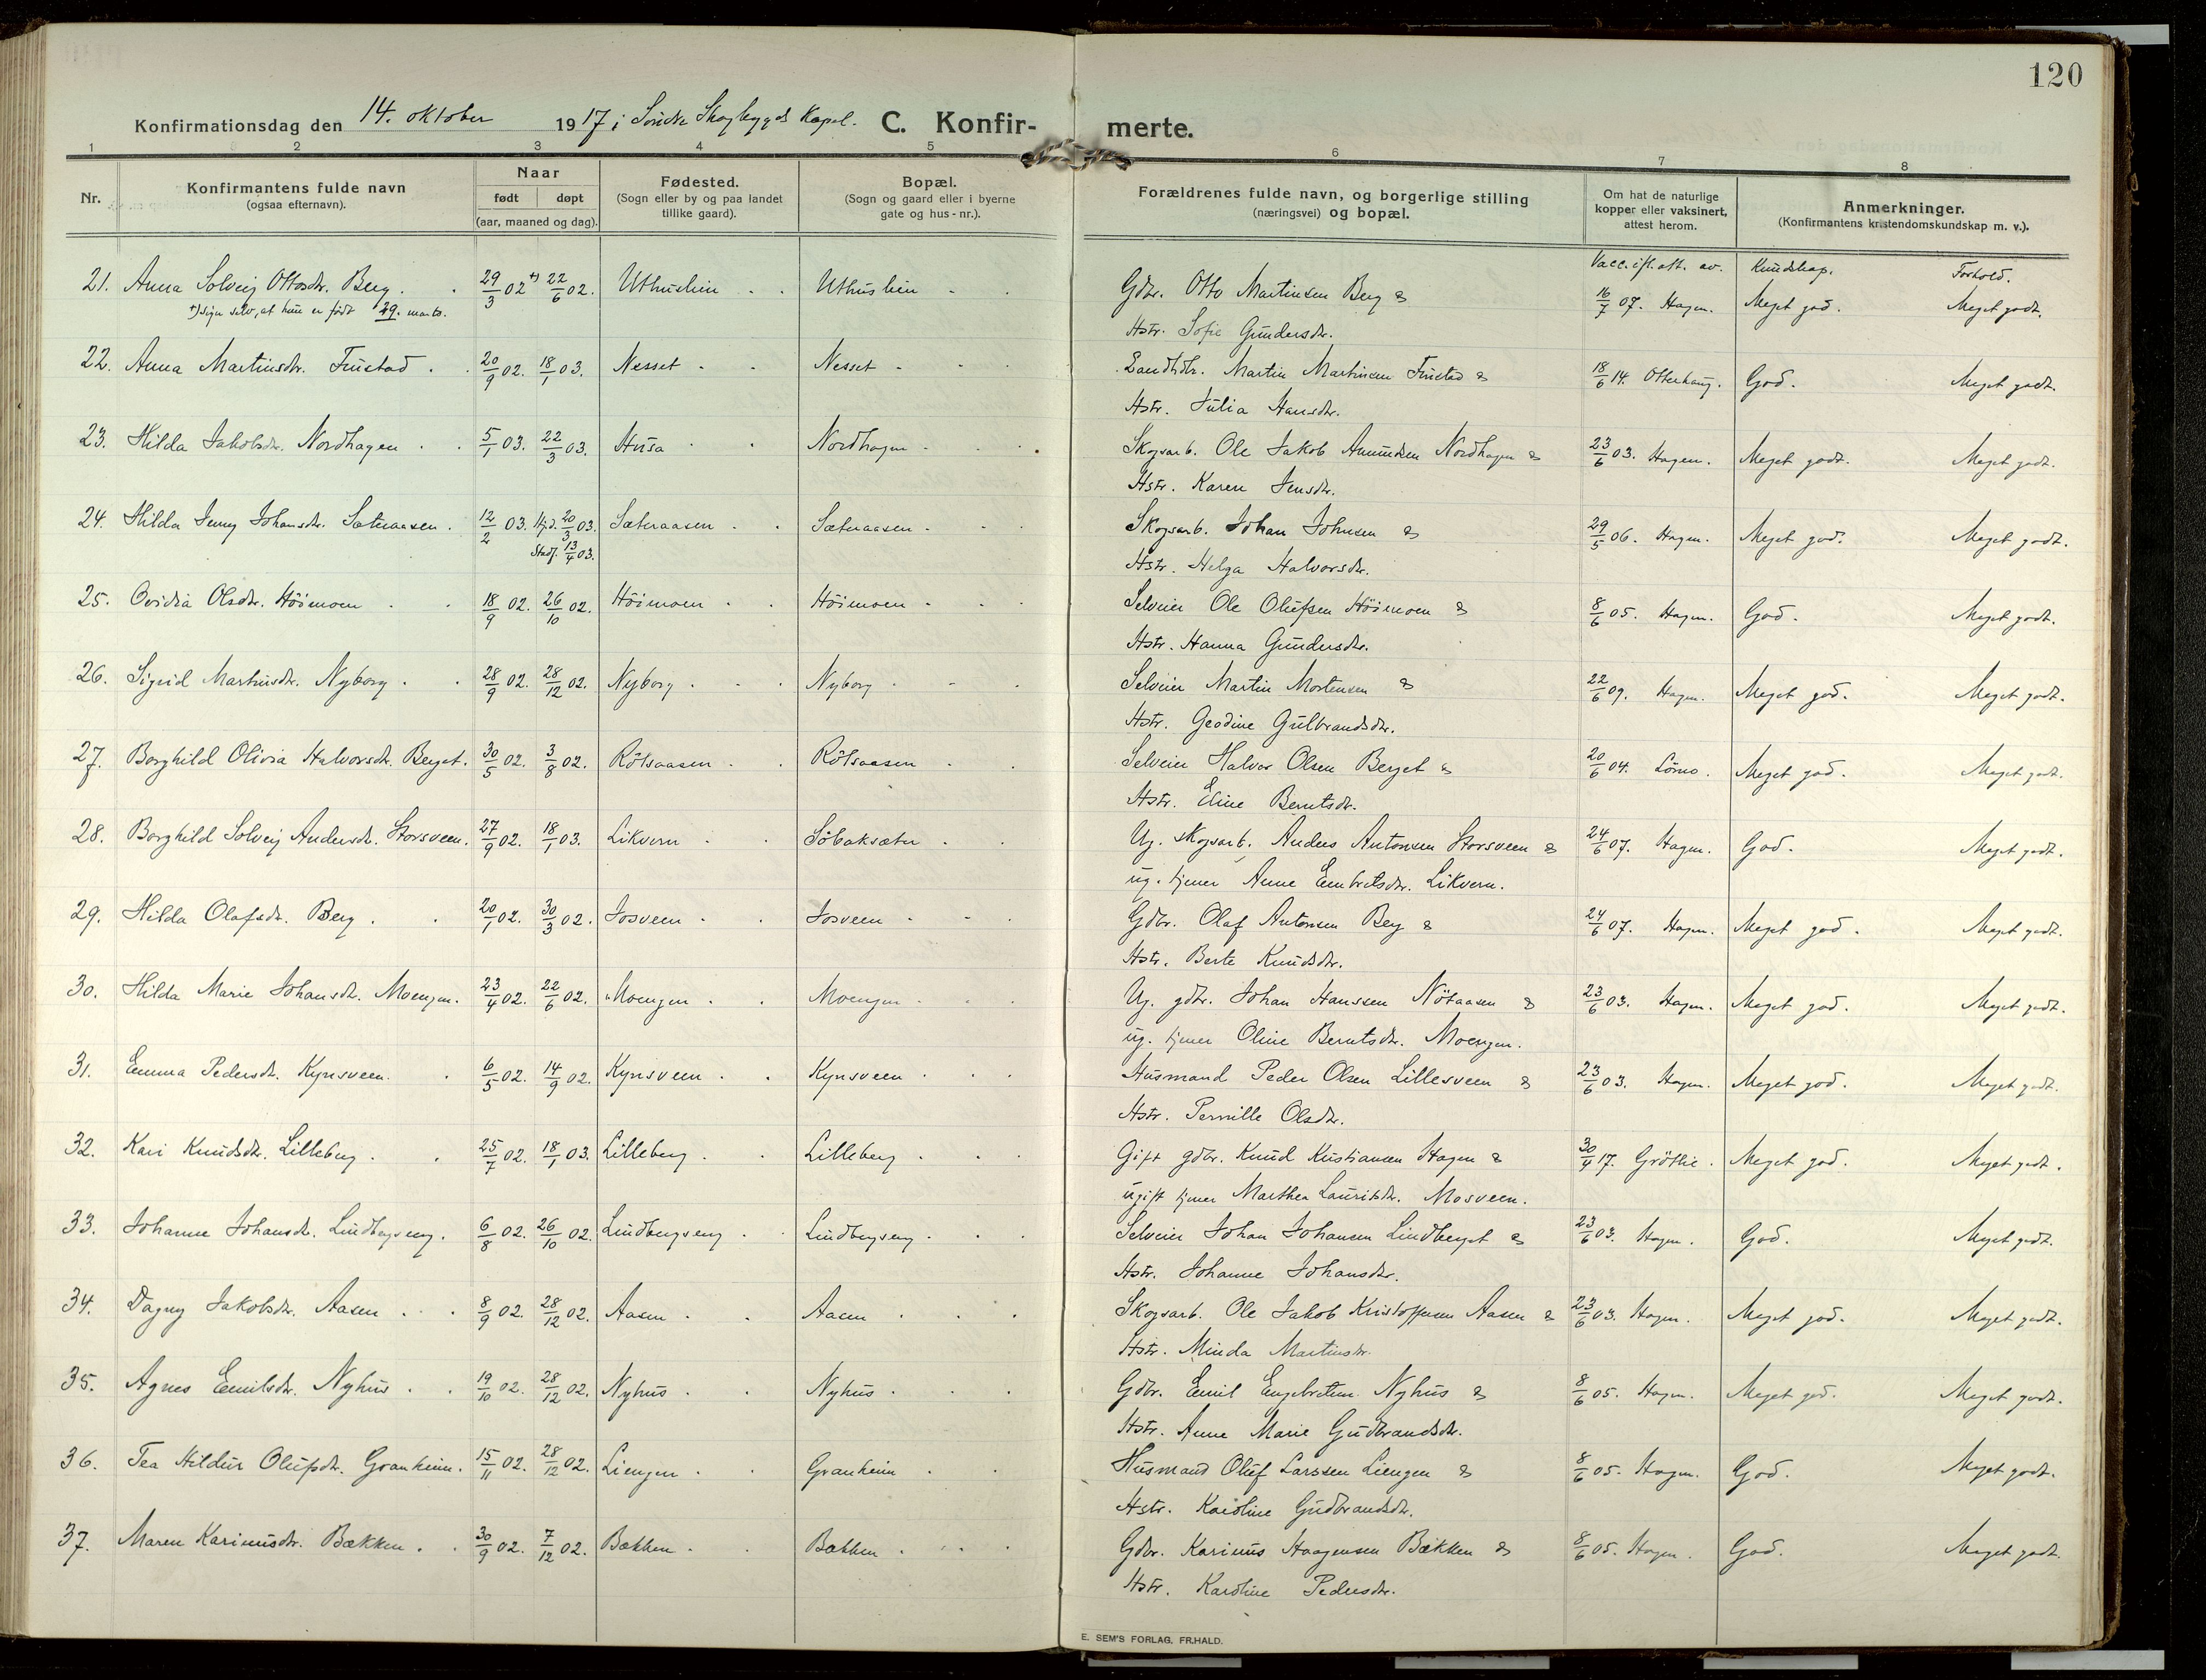 120
Konfirmationsdag den 14. oktober 1917 i Söndre Skogbygds Kapel. C. Konfirmerte.
1 2 3 4 5 6 7 8
Nr. Konfirmantens fulde navn (ogsaa efternavn). Naar født døpt (aar, maaned og dag). Fødested. (Sogn eller by og paa landet tillike gaard). Bopæl. (Sogn og gaard eller i byerne gate og hus-nr.). Forældrenes fulde navn, og borgerlige stilling (næringsvei) og bopæl. Om hat de naturlige kopper eller vaksinert, attest herom. Anmerkninger. (Konfirmantens kristendomskundskap m. v.).
Vacc. ifl. att. av. Kundskap. Forhold.
21. Anna Solveig Ottosdr. Berg. 29/3 02 +) 22/6 02. Uthuslien Uthuslien Gdbr. Otto Martinsen Berg & 16/7 07. Hagen. Meget god. Meget godt.
+) siger selv, at hun er født 29. marts. Hstr. Sofie Gundersdr.
22. Anna Martinsdr. Frustad. 20/9 02. 18/1 03. Nesset Nesset Landhdlr. Martin Martinsen Frustad & 18/6 14. Otterhaug. God. Meget godt.
Hstr. Julia Hansdr.
23. Hilda Jakobsdr. Nordhagen 5/1 03. 22/3 03. Husa Nordhagen Skogsarb. Ole Jakob Amundsen Nordhagen & 23/6 03. Hagen. Meget godt. Meget godt.
Hstr. Karen Jensdr.
24. Hilda Jenny Johansdr. Sæteraasen. 12/2 03. Hjd. 20/3 03. Sæteraasen Sæteraasen Skogsarb. Johan Johnsen & 29/5 06. Hagen. Meget god. Meget godt.
Stadf. 13/4 03. Hstr. Helga Halvorsdr.
25. Ovidia Olsdr. Höimoen 18/9 02. 26/10 02. Höimoen Höimoen Selveier Ole Olufsen Höimoen & 8/6 05. Hagen. God. Meget godt.
Hstr. Hanna Gundersdr.
26. Sigrid Martinsdr. Nyborg 28/9 02. 28/12 02. Nyborg Nyborg Selveier Martin Mortensen & 22/6 09. Hagen. Meget god. Meget godt.
Hstr. Geodine Gulbrandsdr.
27. Borghild Olivia Halvorsdr. Berget. 30/5 02. 3/8 02. Rötsaasen Rötsaasen Selveier Halvor Olsen Berget & 20/6 04. Lömo. Meget god. Meget godt.
Hstr. Eline Berntsdr.
28. Borghild Solveig Andersdr. Storsveen. 27/9 02. 18/1 03. Likvern Söbaksæter Ug. skogsarb. Anders Antonsen Storsveen & 24/6 07. Hagen. God. Meget godt.
ug. tjener Anne Embretsdr. Likvern.
29. Hilda Olafsdr. Berg. 20/1 02. 30/3 02. Josveen Josveen Gdbr. Olaf Antonsen Berg & 24/6 07. Hagen. Meget god. Meget godt.
Hstr. Berte Knudsdr.
30. Hilda Marie Johansdr. Moengen. 23/4 02. 22/6 02. Moengen Moengen Ug. gdbr. Johan Hanssen Nötaasen & 23/6 03. Hagen. Meget god. Meget godt.
ug. tjener Oline Berntsdr. Moengen.
31. Emma Pedersdr. Kynsveen. 6/5 02. 14/9 02. Kynsveen Kynsveen Husmand Peder Olsen Lillesveen & 23/6 03. Hagen. Meget god. Meget godt.
Hstr. Pernille Olsdr.
32. Kari Knudsdr. Lilleberg. 25/7 02. 18/1 03. Lilleberg Lilleberg Gift gdbr. Knud Kristiansen Hagen & 30/4 17. Meget god. Meget godt.
ugift tjener Marthea Lauritsdr. Mosveen.
33. Johanne Johansdr. Lindbergseng. 6/8 02. 26/10 02. Lindbergseng Lindbergseng Selveier Johan Johansen Lindberget & 23/6 03. Hagen. God. Meget godt.
Hstr. Johanne Johansdr.
34. Dagny Jakobsdr. Aasen 8/9 02. 28/12 02. Aasen Aasen Skogsarb. Ole Jakob Kristoffersen Aasen & 23/6 03. Hagen. Meget god. Meget godt.
Hstr. Minda Martinsdr.
35. Agnes Emilsdr. Nyhus 19/10 02. 28/12 02. Nyhus Nyhus Gdbr. Emil Engebretsen Nyhus & 8/6 05. Hagen. Meget god. Meget godt.
Hstr. Anne Marie Gudbrandsdr.
36. Tea Hildur Olufsdr. Granheim. 15/11 02. 28/12 02. Liengen Granheim Husmand Oluf Larssen Liengen & 8/6 05. Hagen. God. Meget godt.
Hstr. Karoline Gudbrandsdr.
37. Maren Karinusdr. Bækken. 30/9 02. 7/12 02. Bækken Bækken Gdbr. Karinus Haagensen Bækken & 8/6 05. Hagen. God. Meget godt.
Hstr. Karoline Pedersdr.
E. SEM'S FORLAG, FR.HALD.